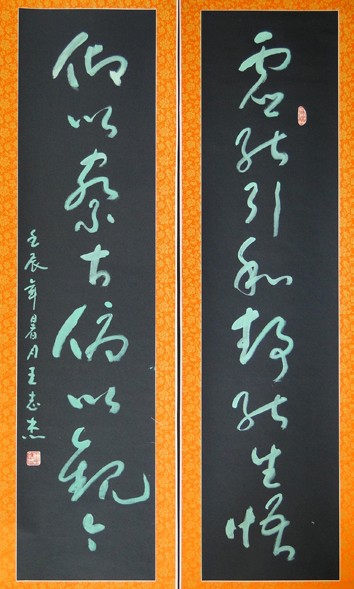 虚能引和静能生悟
仰以察古俯以觀今
壬辰年暑月王志杰